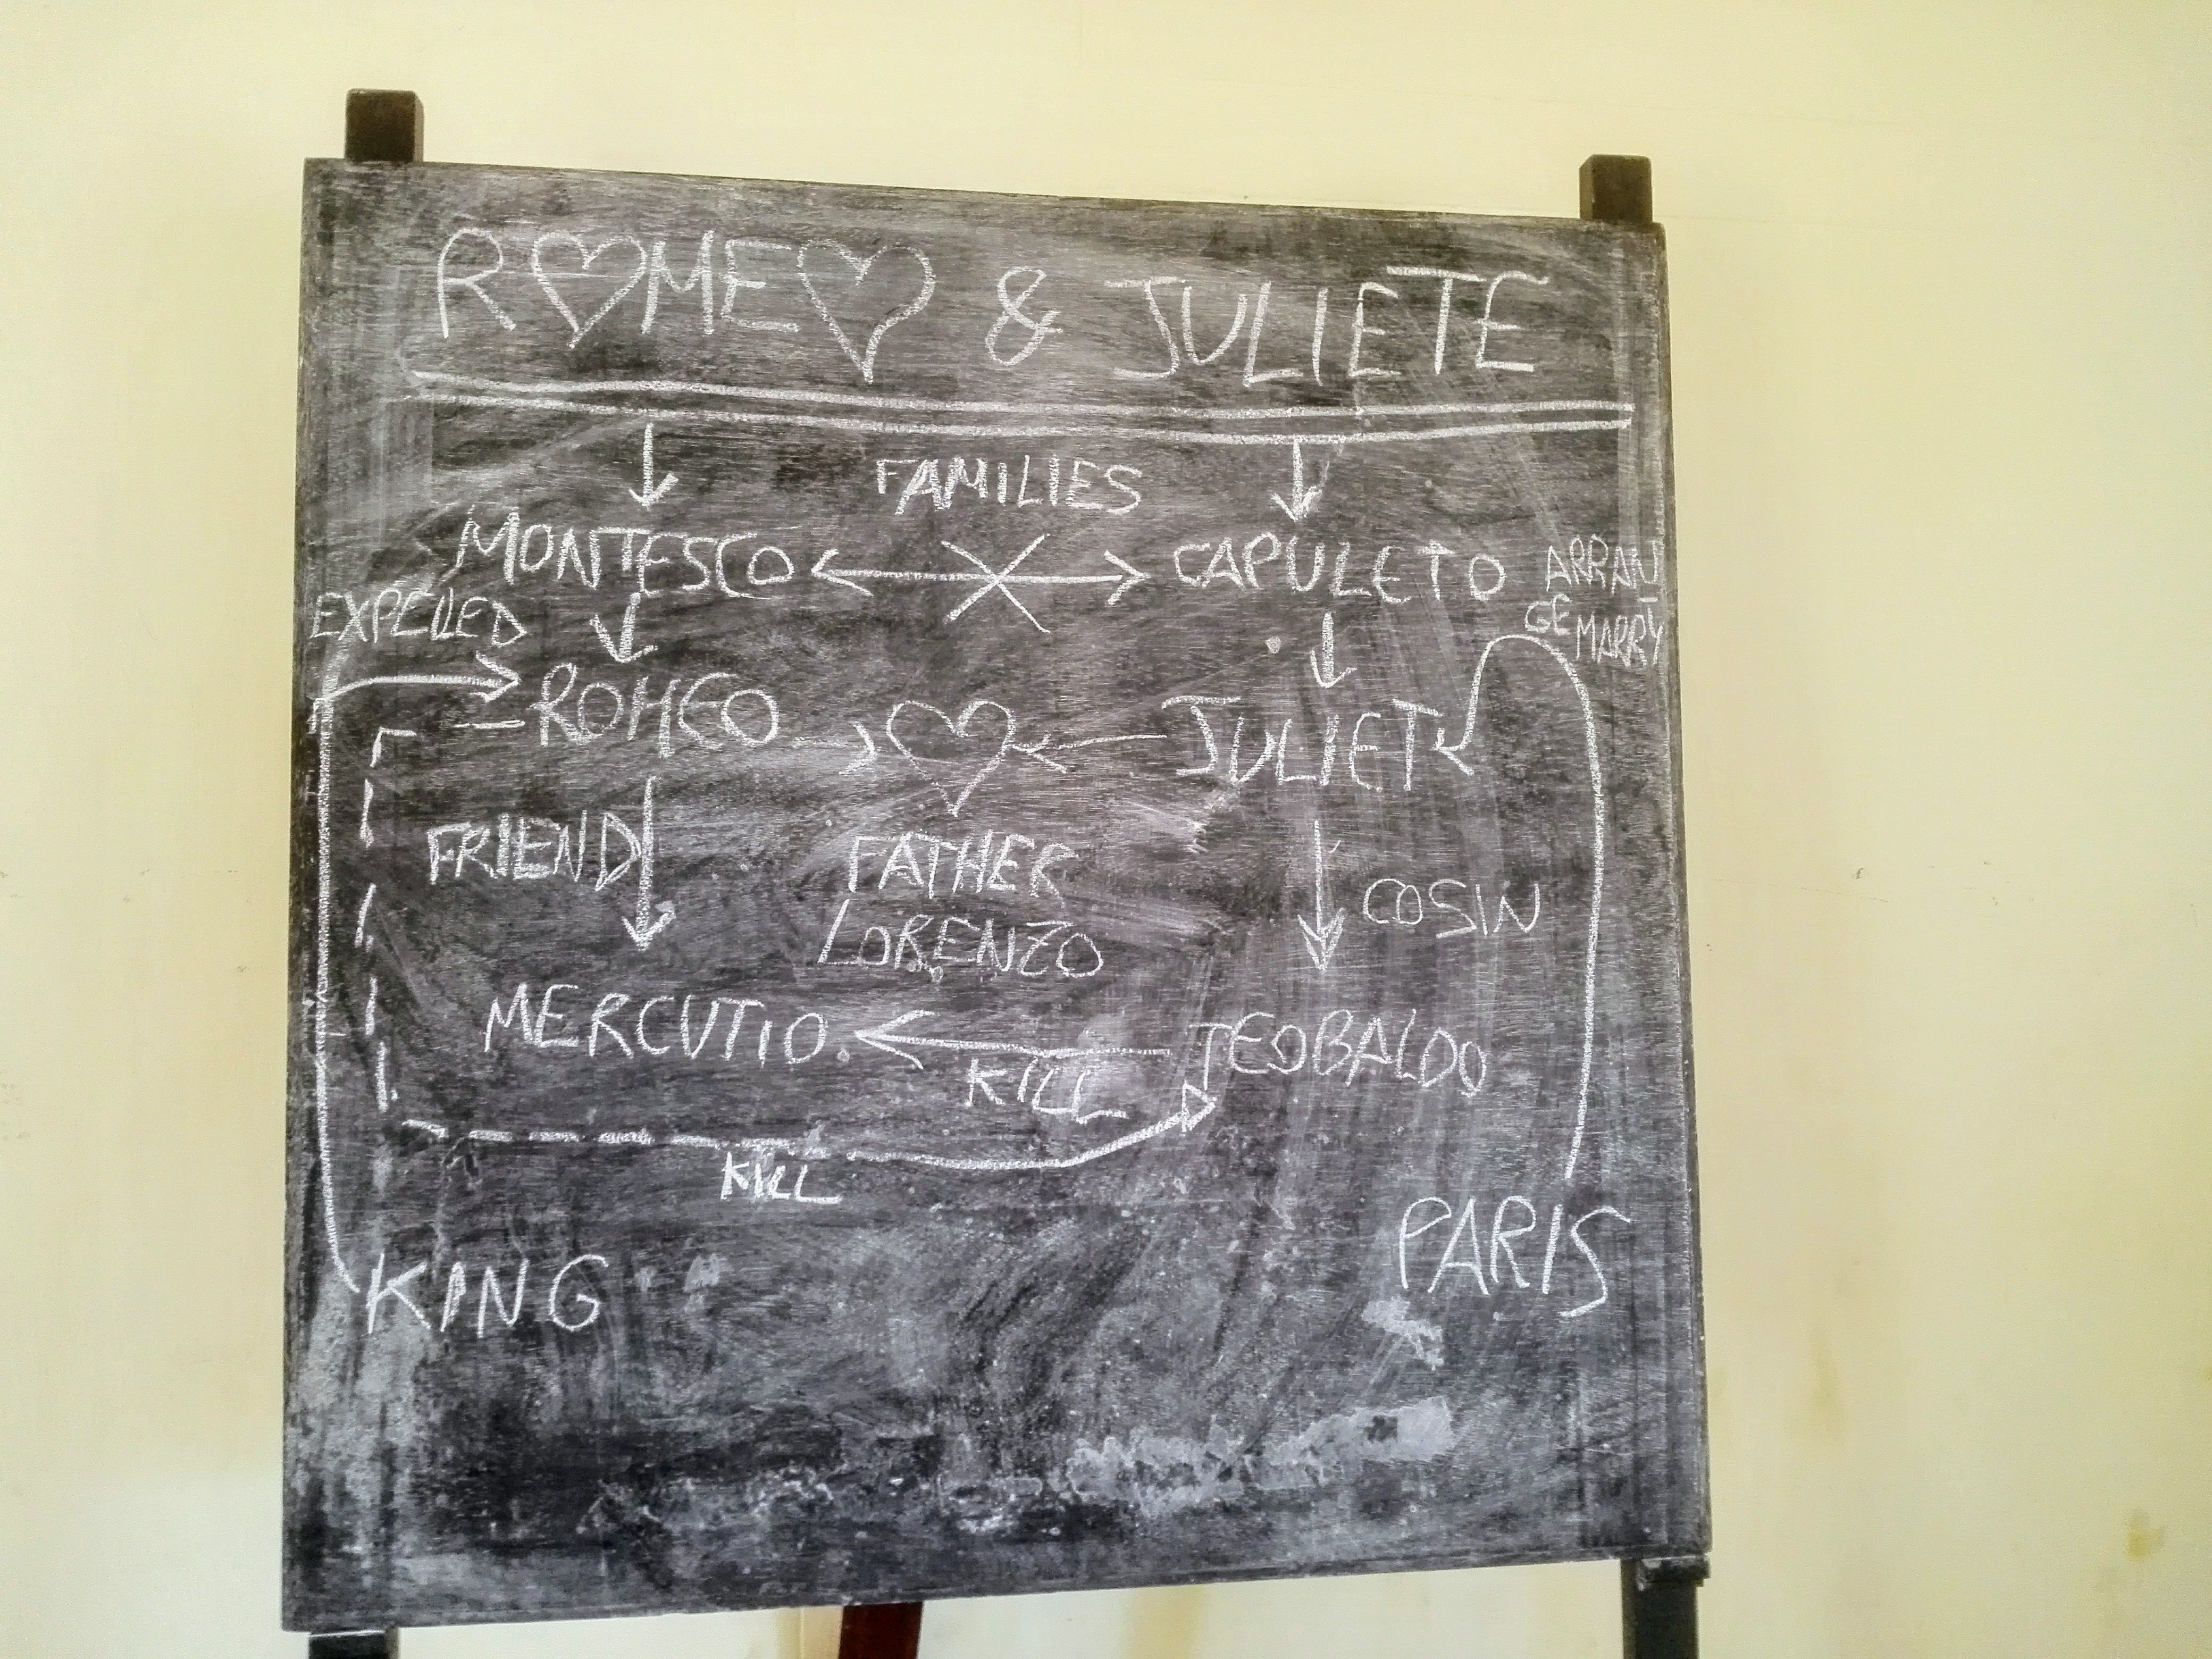 ROMEO & JULIETE
FAMILIES
MONTESCO CAPULETO
ARRAN
GE MARRY
EXPELLED
ROMEO JULIET
FRIEND
FATHER
LORENZO
COSIN
MERCUTIO TEOBALDO
KILL
KILL
KING PARIS